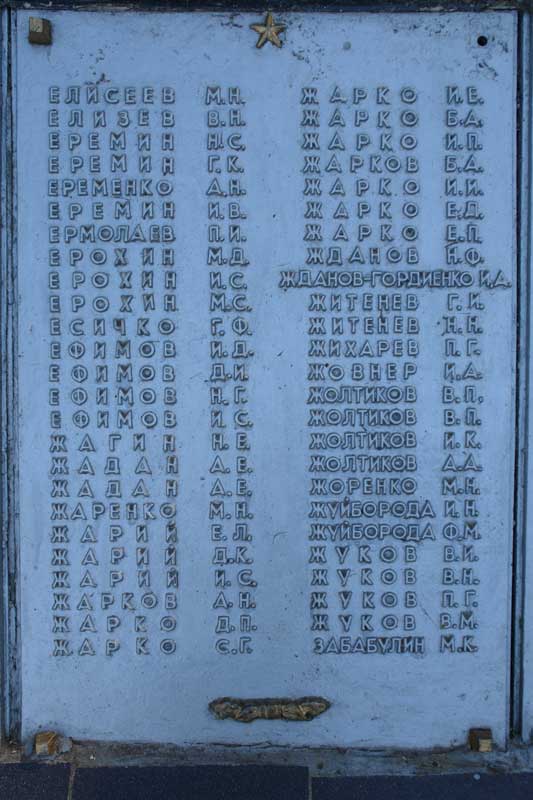 ЕЛИСЕЕВ М.Н.
ЕЛИЗЕВ В.Н.
ЕРЕМИН Н.С.
ЕРЕМИН Г.К.
ЕРЕМЕНКО А.Н.
ЕРЕМИН И.В.
ЕРМОЛАЕВ П.И.
ЕРОХИН М.Д.
ЕРОХИН И.С.
ЕРОХИН М.С.
ЕСИЧКО Г.Ф.
ЕФИМОВ И.Д.
ЕФИМОВ Д.И.
ЕФИМОВ Н.Г.
ЕФИМОВ И.С.
ЖАГИН Н.Е.
ЖАДАН А.Е.
ЖАДАН А.Е.
ЖАРЕНКО М.Н.
ЖАРИЙ Е.Л.
ЖАРИЙ Д.К.
ЖАРИЙ И.С.
ЖАРКОВ А.Н.
ЖАРКО Д.П.
ЖАРКО С.Г.
ЖАРКО И.Е.
ЖАРКО Б.А.
ЖАРКО И.П.
ЖАРКОВ Б.Д.
ЖАРКО И.И.
ЖАРКО Е.Д.
ЖАРКО Е.П.
ЖДАНОВ Н.Ф.
ЖДАНОВ-ГОРДИЕНКО И.А.
ЖИТЕНЕВ Г.И.
ЖИТЕНЕВ Н.Н.
ЖИХАРЕВ П.Г.
ЖОВНЕР И.А.
ЖОЛТИКОВ В.П.
ЖОЛТИКОВ В.П.
ЖОЛТИКОВ И.К.
ЖОЛТИКОВ А.А.
ЖОРЕНКО М.Н.
ЖУЙБОРОДА И.Н.
ЖУЙБОРОДА Ф.М.
ЖУКОВ В.И.
ЖУКОВ В.Н.
ЖУКОВ П.Г.
ЖУКОВ В.М.
ЗАБАБУЛИН М.К.